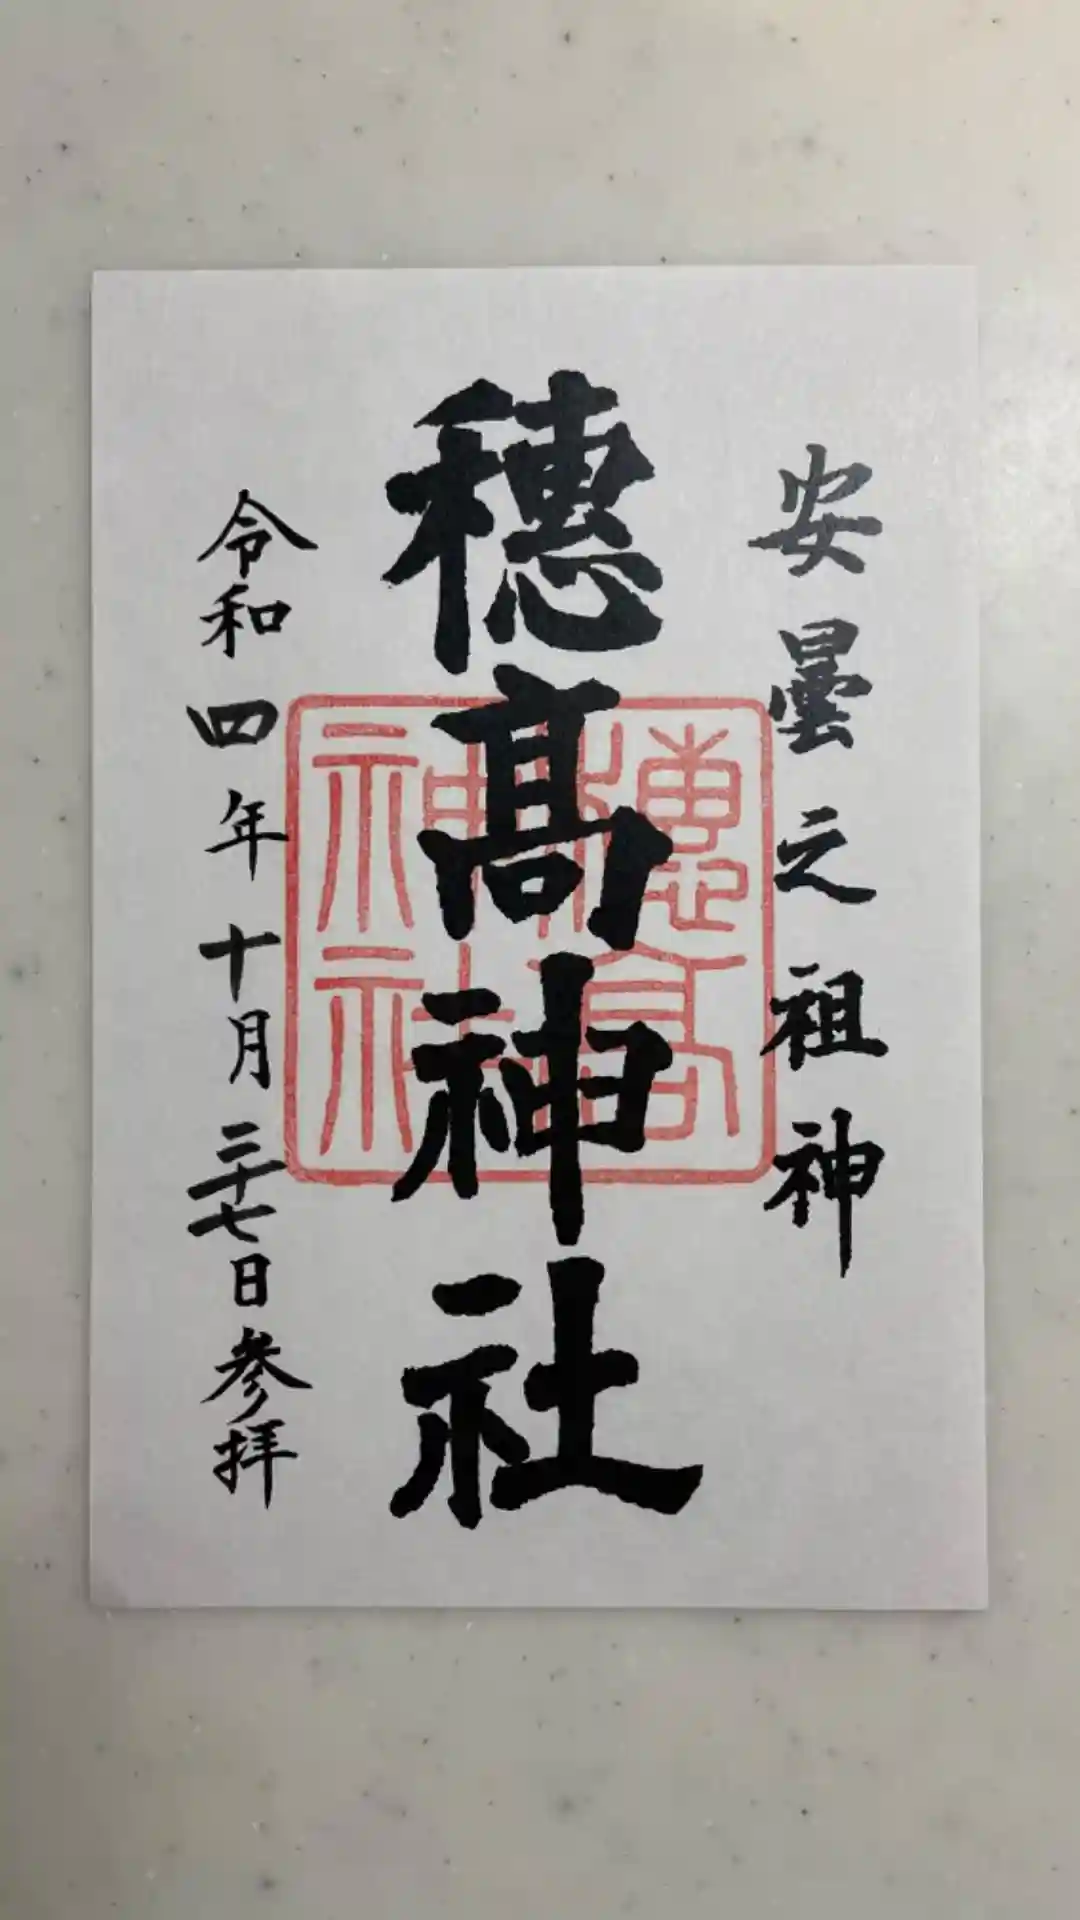 安曇之祖神
穗髙神社
令和四年十月二十七日参拝
穗高
神社